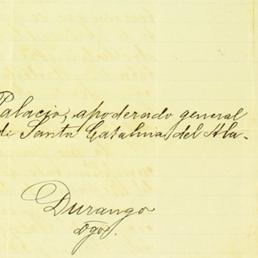 Palacio, apoderado general
di Santa Catalina del Ala-
Durango
Dgo.